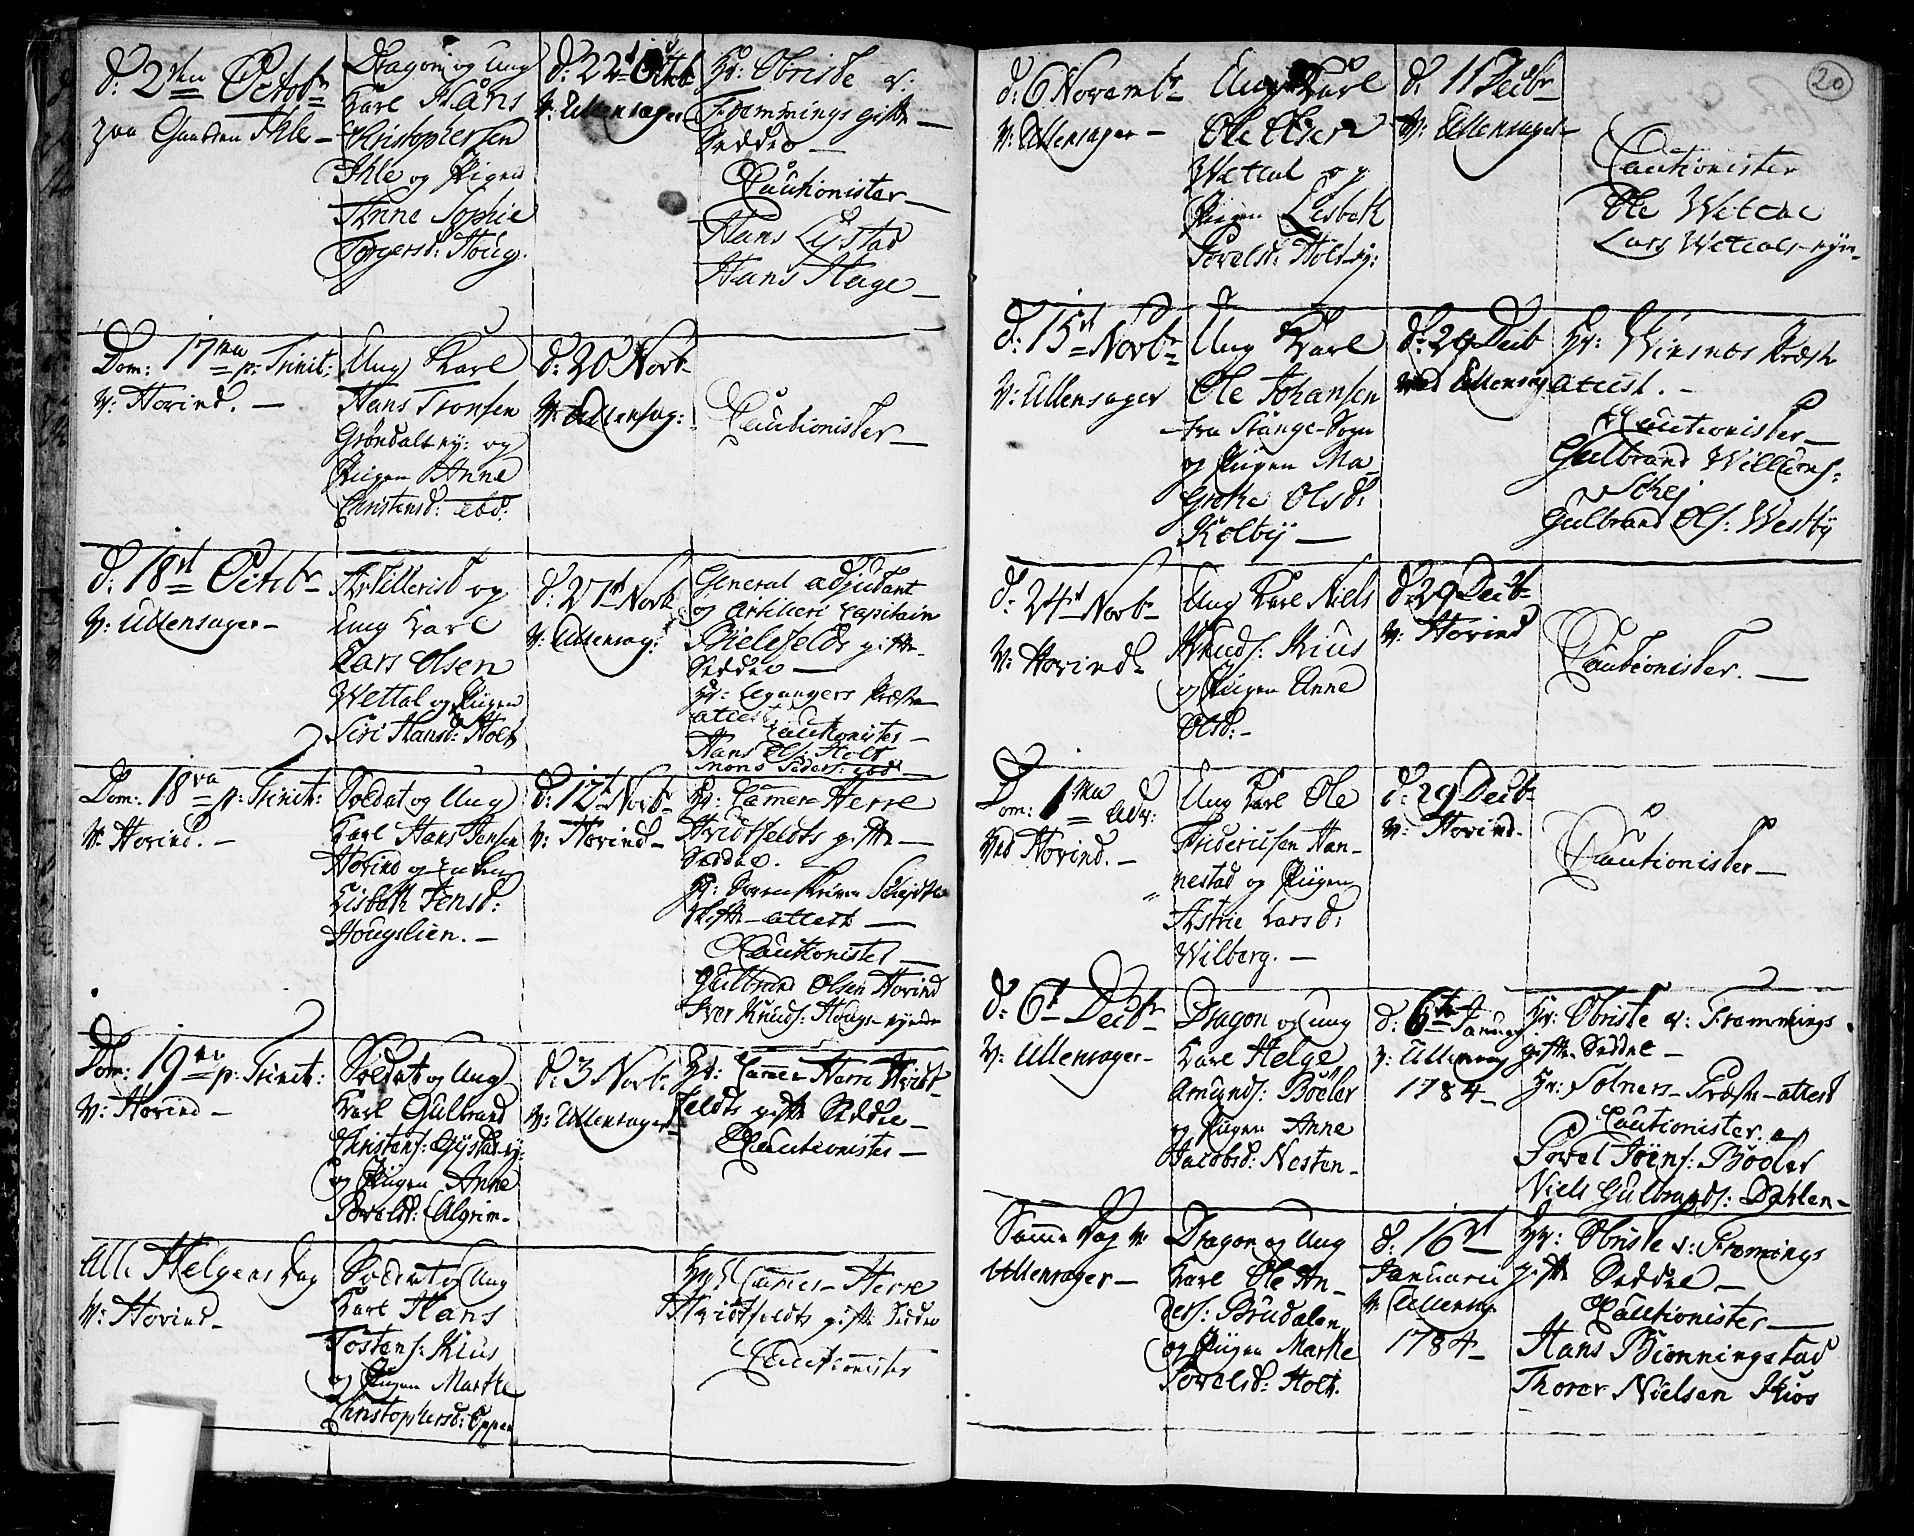 d: 2den Octobr
paa Gaarden Ihle –
Dragon og Ung
Karl Hans
Christophersen
Ihle og Pigen
Anne Sophie
Torgersd: Houg.
d: 22 Octob
V: Ullensager
Hr: Obriste v:
Fremmings gifte –
Seddel –
Cautionister –
Hans Lystad
Hans Hage –
Dom: 17ma p: Trinit:
V: Hovind. –
Ung Karl
Hans Tronsen
Grøndals ey: og
Pigen Anne
Christensd: ibd:
d: 20 Novb
V: Ullensag:
Cautionister –
d: 18de Octobr
V: Ullensager –
Artillerist og
ung Karl
Lars Olsen
Wettal og Pigen
Siri Hansd: Holt
d: 27de Novb
V: Ullensag:
General adjudant
og Artilleri Capitain
Bielefelds gifte-
Seddel –
Hr: Leganger Præste
attest
Cautionister –
Hans Ols: Holt
Mons Peders: ibd
Dom: 18va p: Trinit:
V: Hovind. –
Soldat og Ung
Karl Hans Jensen
Hovind og Enken
Lisbeth Jensd:
Hougslien. –
d: 12te Novbr
V: Hovind –
Hr: Cammer Herre
Hvidtfeldts gifte –
Seddel. –
Skifte – attest –
Cautionister –
Gulbrand Olsen Hovind
Iver Knuds: Hougs – eyende
Dom: 19na p: Trinit:
V: Hovind –
Soldat og Ung
Karl Gulbrand
Christens: Gystad ey:
og Pigen Anne
Povelsd: Algrim –
d: 3 Novb:
V: Ullensager –
Hr: Cammer Herre Hvidt-
feldts gifte Seddel –
Cautionister –
Alle Helgens dag
V: Hovind –
Soldat og Ung
Karl Hans
Tostens: Kius
og Pigen Marthe
Christophersd: Oppen
Hr: Cammer – Herre
Hvidtfeldts gifte Seddel
Cautionister
20
d: 6 Novembr
V: Ullensager –
Ung Karl
Ole Olsen
Wetal og
Pigen Lisbeth
Povelsd: Holts ey:
d: 11 Decbr
V: Ullensager –
Cautionister
Ole Wetal
Lars Wetals – eyen –
d: 15de Novbr
V: Ullensager
Ung Karl
Ole Johansen
fra Stange – Sogn
og Pigen Ma-
grethe Olsd:
Kolby –
d: 29 Decb
ved Ullensag
Hr: Winsnes Præste
attest. –
Cautionister –
Gulbrand Willums:
Schej
Gulbrand Ols: Westby
d: 24de Novbr
V: Hovind –
Ung Karl Niels
Knuds: Kius
og Pigen Anne
Olsd: –
d: 29 Decbr
V: Hovind
Cautionister. –
Dom: 1ma Adv:
Ved Hovind. –
Ung Karl Ole
Fridericksen Han-
nestad og Pigen
Astrie Larsd:
Wilberg. –
d: 29 Decbr
V: Hovind –
Cautionister –
d: 6te Decbr
V: Ullensager –
Dragon og ung
Karl Helge
Amunds: Bøeler
og Pigen Anne
Jacobsd: Nesten –
d: 6te Januarj
V: Ullensag
1784 –
Hr: Obriste v: Fremmings
gifte Seddel –
Hr: Tolners – Præste – attest
Cautionister. –
Povel Joens: Bøeler
Niels Gulbrands: Dahlen –
Samme Dag V:
Ullensager –
Dragon og Ung
Karl Ole An-
ders: Brudalen
og Pigen Marthe
Povelsd: Holt.
d: 16de
Januarii
V: Ullensag
1784 –
Hr: Obriste v: Fremings
gifte Seddel –
Cautionister –
Hans Biønningstad
Thorer Nielsen Kios